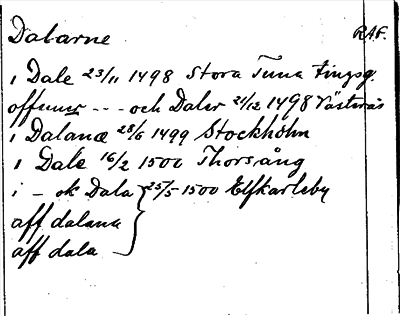 Dalarne RAP.
i Dale 23/11 1498 Stora Tuna tingsg.
offuner -- - och Daler 21/12 1498 Västerås
i Dalanæ 28/6 1499 Stockholm
i Dale 16/2 1500 Thorsång
i - ok Dala } 25/5 1500 Elfkarleby
aff dalana
aff dala